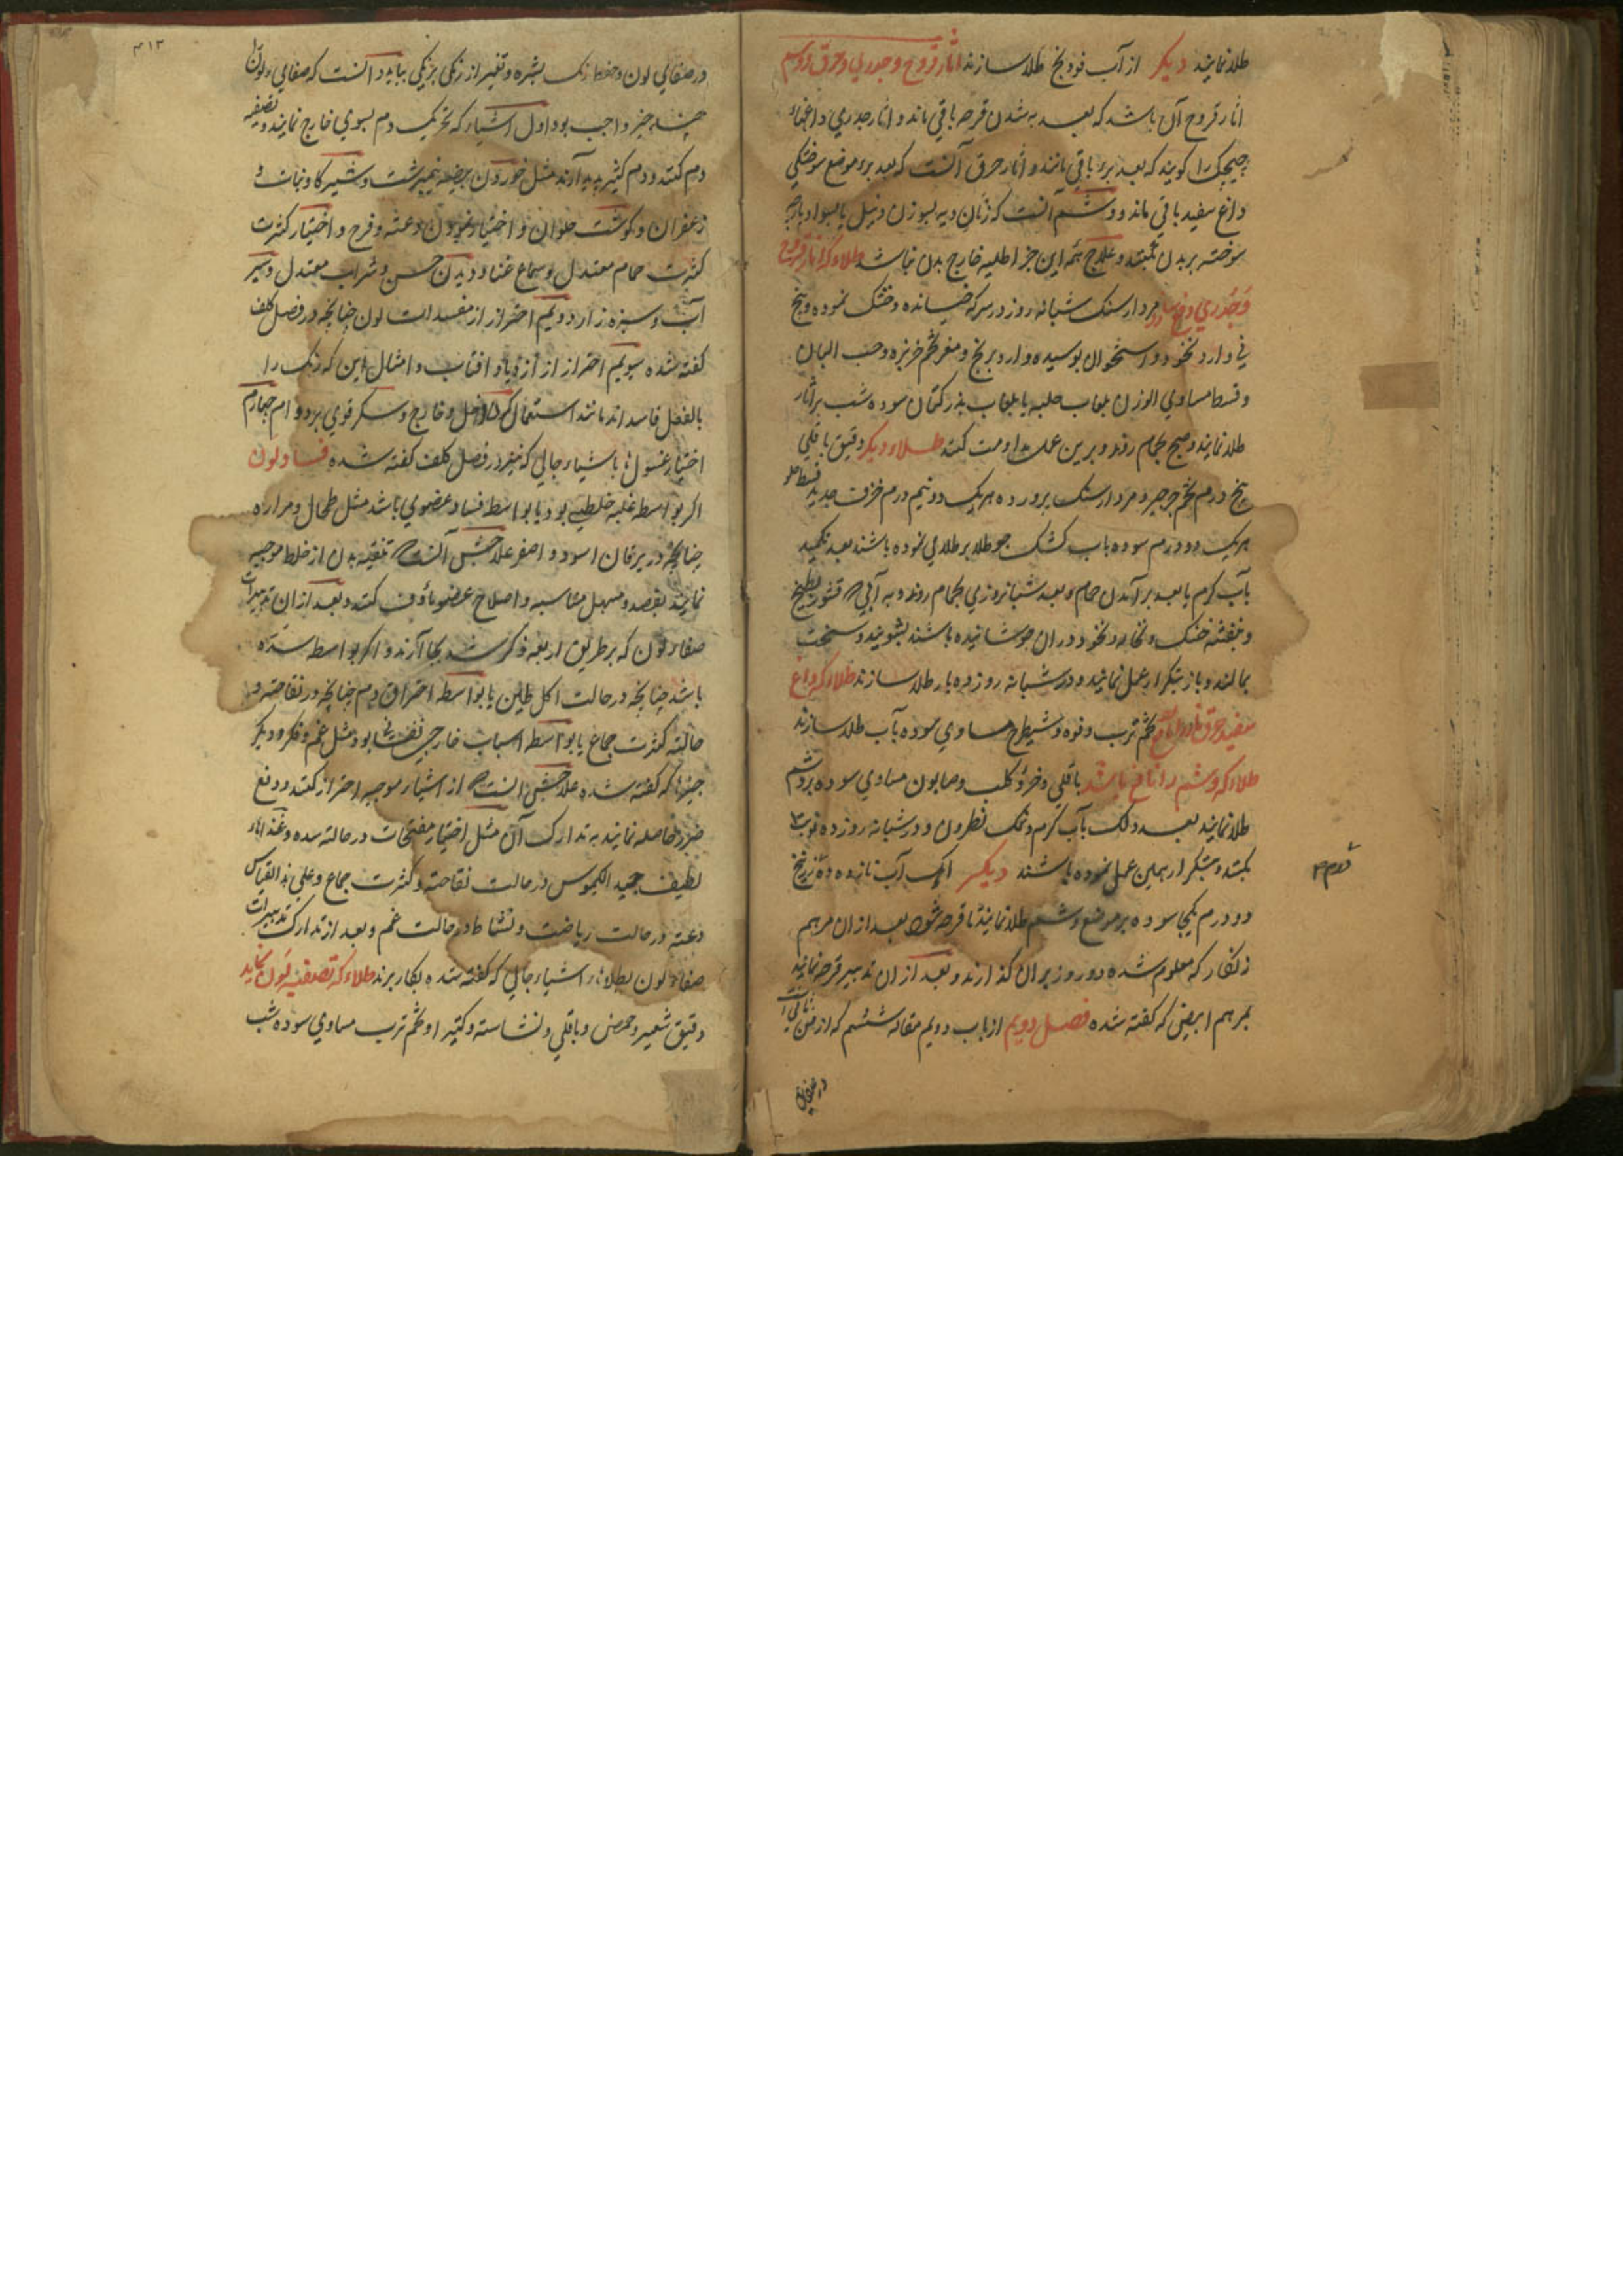 طلا نمایند دیکر از آب فودنج طلا سازند اثار قروح و جدری و حرق و وشم
اثار قروح آن باشد که بعد به شدن قرحه باقی ماند و اثار جدری داغهاء
چیچک را کویند که بعد برء باقی مانند و اثار حرق آنست که بعد برء موضع سوختکی
داغ سفید باقی ماند و وشم آنست که زنان دیه بسوزن و نیل یا بسواد پارچه
سوخته بر بدن بکنند و علاج همه این جز اطلیه خارج بدن نباشد طلاء که اثار قروح
و جدری و مردارسنک شبانه روز در سرکه خیسانده و خشک نموده و بیخ
نی و ارد نخود و استخوان بوسیده و ارد برنج و مغز تخم خربزه و حب البان
و قسط مساوی الوزن بلعاب حلبه یا بلعاب بذر کتان سوده شب بر اثار
طلا نمایند و صبح بحمام روند و برین عمل مداومت کنند طلاء دیکر دقیق باقلی
پنج درم تخم جرجیر و مردارسنک پرورده هریک دو نیم درم خزف جدید قسط حلو
هریک دو درم سوده باب کشک جو طلا بر طلا می نموده باشند بعد تکمید
بآب کرم یا بعد بر آمدن حمام و بعد شبانروزی بحمام روند و به آبی که قشور بطیخ
و بنفشه خشک و نخاله و نخود در ان جوشانیده باشند بشویند و سخت
بمالند و باز بتکرار عمل نمایند و در شبانه روز ده بار طلا سازند طلاء که داغ
سفید حرق نار را تخم ترب و فوه و شیطرج مساوی سوده بآب طلا سازند
طلاء که وشم را نافع باشد باقلی و خرؤ کلب و صابون مساوی سوده بر وشم
طلا نمایند بعد دلک بآب کرم و نمک نطرون و در شبانه روز ده نوبت
بکنند و بتکرار همین عمل نموده باشند دیکر آهک آب نازده و زرنیخ
دو درم یکجا سوده بر موضع وشم طلا نمایند تا قرحه شود بعد ازان مرهم
زنکار که معلوم شده دو روز بران کذارند و بعد ازان تدبیر قرحه نمایند
بمرهم ابیض که کفته شده فصل دویم از باب دویم مقاله ششم که از فن ثانی
در صفای
۳۱۳
در صفائی لون و حفظ رنک بشره و تغیر از رنکی برنکی بباید دانست که صفای لون را
چند چیز واجب بود اول اشیاء که تحریک دم بسوی خارج نمایند و تصفیه
دم کنند و دم کثیر پدید آرند مثل خوردن بیضه نیمبرشت و شیر کاو و نبات و
زعفران و کوشت حلوان و اختیار نمودن دعته و فرح و اختیار کثرت
کثرت حمام معتدل و سماع غنا و دیدن حسن و شراب معتدل و سیر
آب و سبزه زار دویم احتراز از مفسدات لون چنانچه در فصل کلف
کفته شده سیویم احتراز از ازدیاد افتاب و امثال این که رنک را
بالفعل فاسد اند مانند استعمال کمون داخل و خارج و سکر قوی بر دوام چهارم
اختیار غسول ها باشیاء جالی که نیز در فصل کلف کفته شده فساد لون
اکر بواسطه غلبه خلطی بود یا بواسطه فساد عضوی باشد مثل طحال و مراره
چنانچه در یرقان اسود و اصفر علاجش آنست که تنقیه بدن از خلط موجبه
نمایند بفصد و مسهل مناسبه و اصلاح عضو مأوف کنند و بعد ازان تدبیرات
صفاء لون که بر طریق اربعه ذکر شد بجا آرند و اکر بواسطه سده
باشد چنانچه در حالت اکل طین یا بواسطه احتراق دم چنانچه در نقاحته و
حالت کثرت جماع یا بواسطه اسباب خارجی نفسانی بود مثل غم و فکر و دیکر
چیزها که کفته شده علاجش انست که از اشیاء موجبه احتراز کنند و دفع
ضرر حاصله نمایند به تدارک آن مثل اختیار مفتحات در حالته سده و غذاهاء
لطیف جید الکیموس در حالت نقاحته و کثرت جماع و علی هذا القیاس
دعته در حالت ریاضت و نشاط در حالت غم و بعد از تدارک تدبیرات
صفاء لون بطلاهاء اشیاء جالی که کفته شده بکار برند طلاء که تصفیه لون نماید
دقیق شعیر و حمص و باقلی و نشاسته و کتیرا و تخم ترب مساوی سوده شب